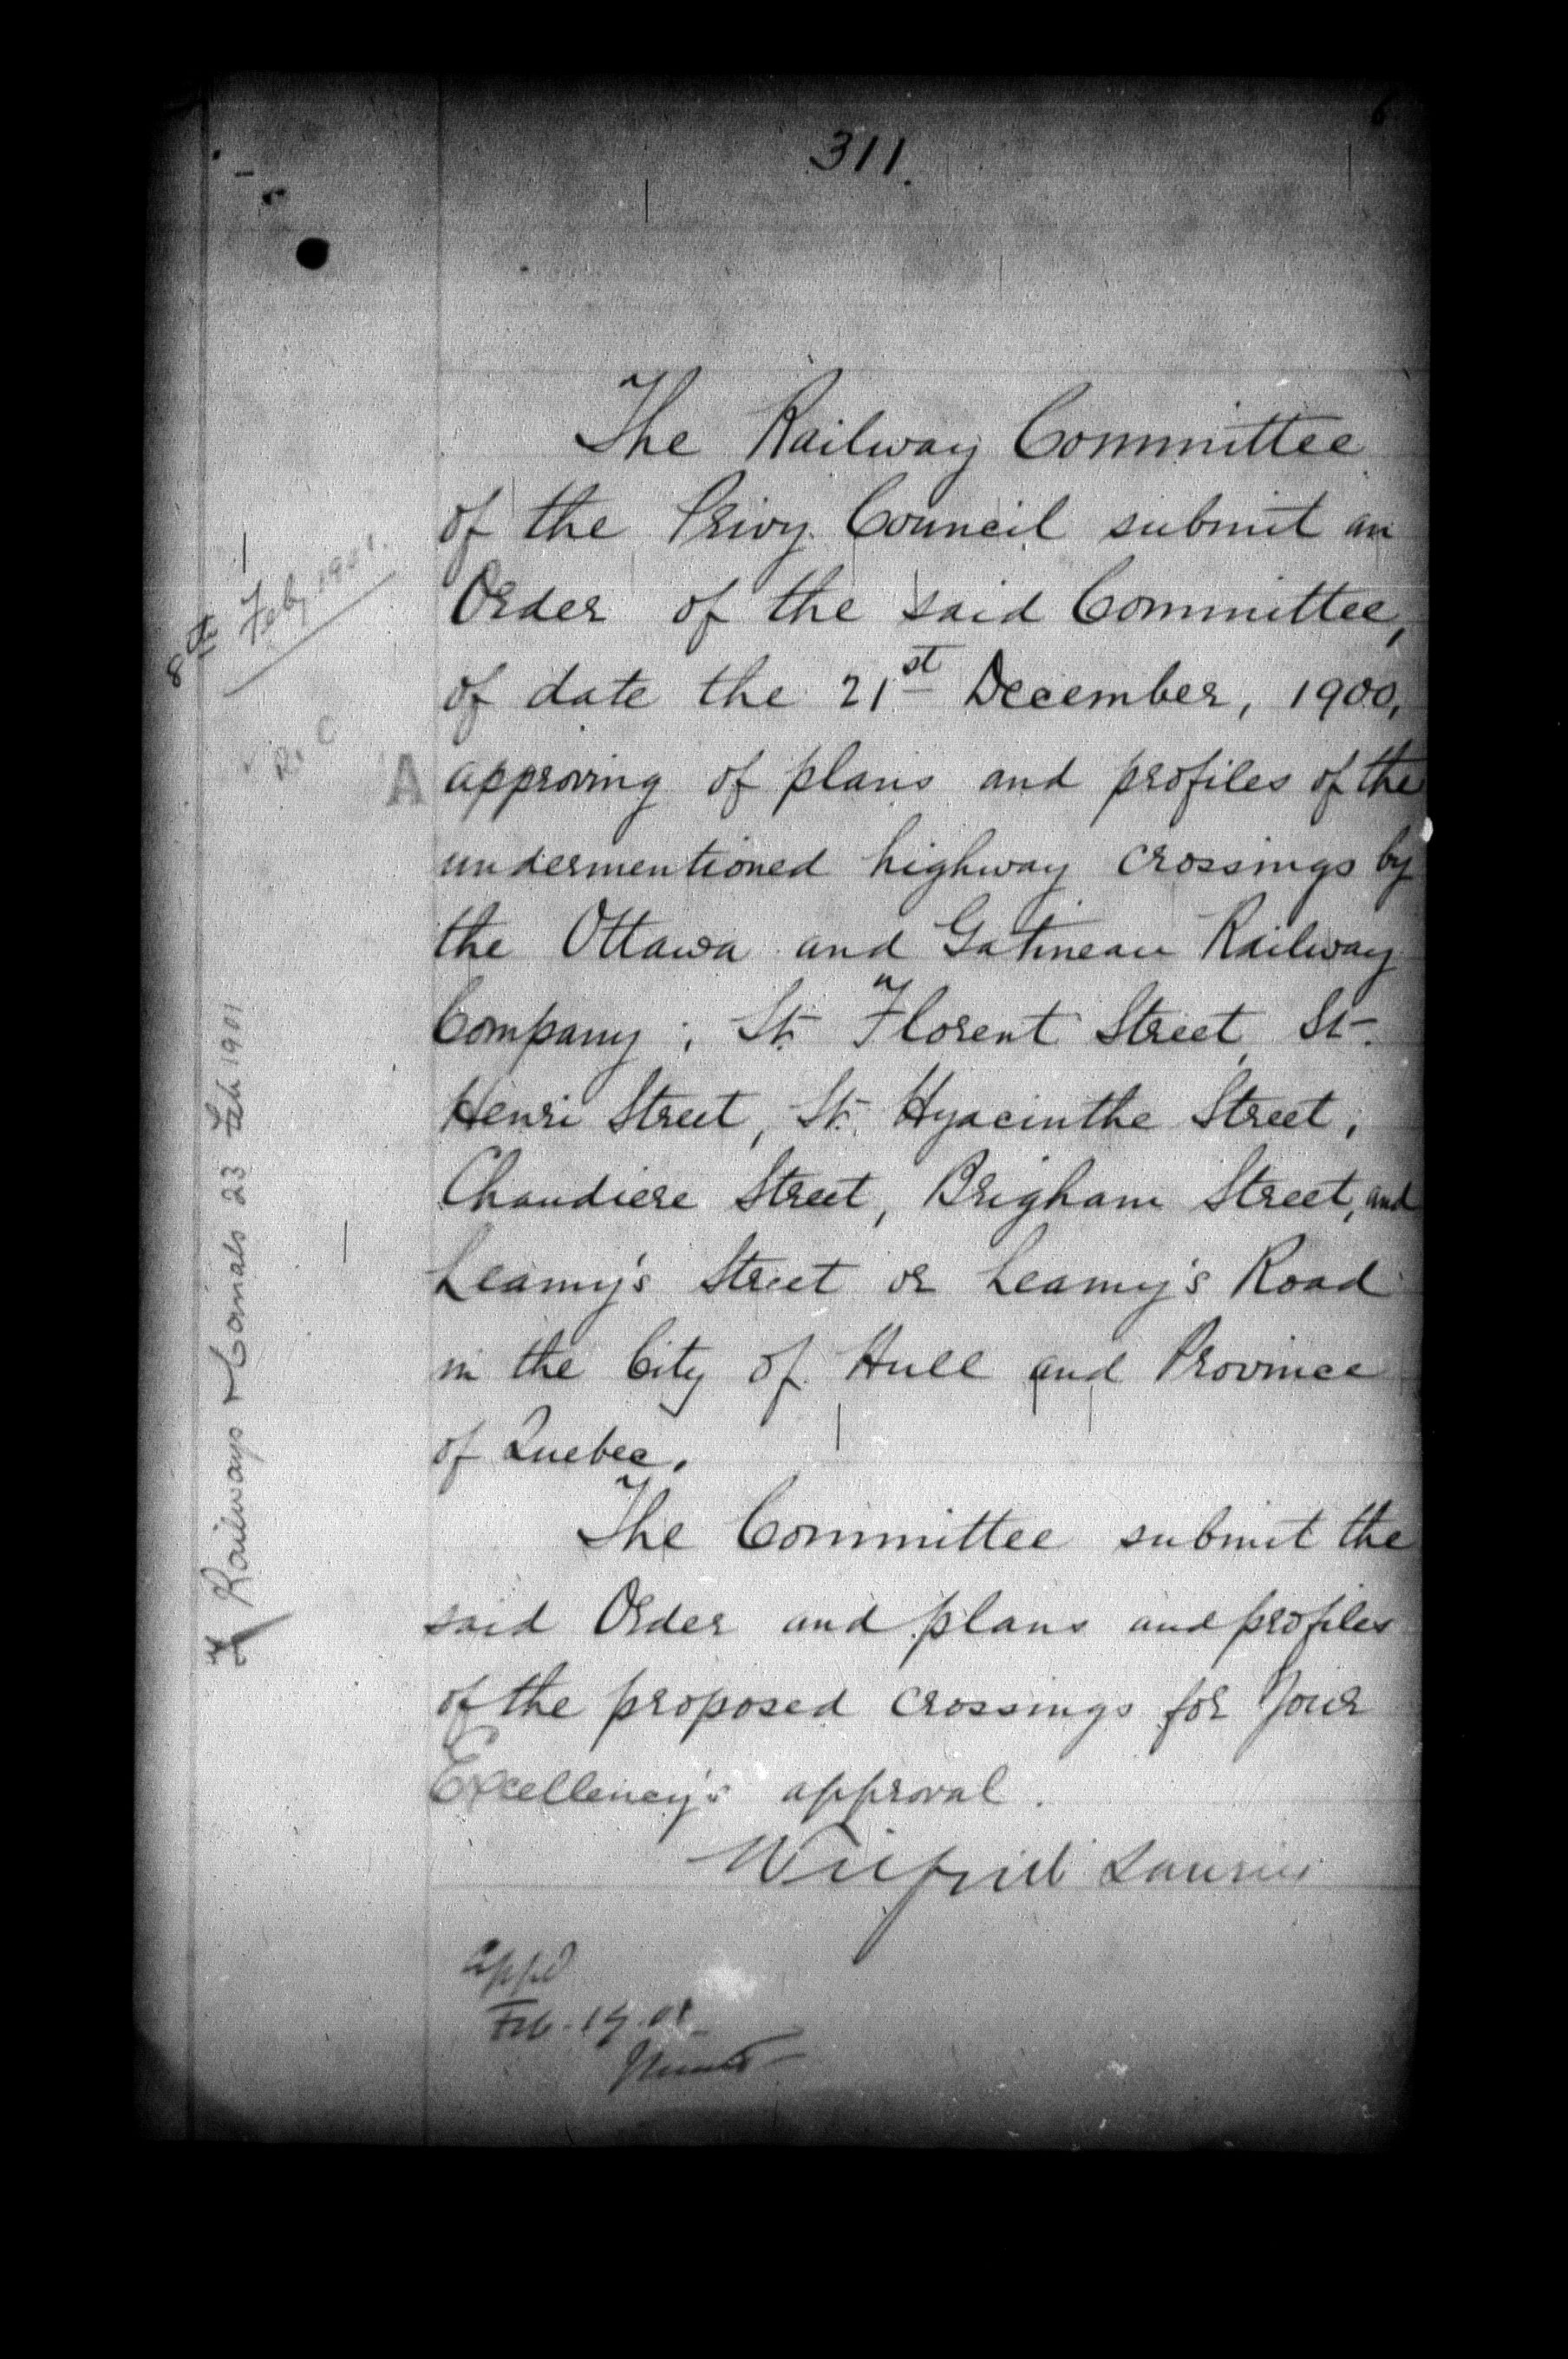 311.
The Railway Committee
of the Privy Council submit an
Order of the said Committee,
of date the 21st December, 1900,
approving of plans and profiles of the
undermentioned highway crossings by
the Ottawa and Gatineau Railway
Company; St. Florent Street, St.
Henri Street, St. Hyacinthe Street,
Chaudiere Street, Brigham Street, and
Leamy's Street or Leamy's Road
in the City of Hull and Province
of Quebec.
The Committee submit the
said Order and plans and profiles
of the proposed crossings for Your
Excellency's approval.
Wilfrid Laurier
Appd
Feb. 19. 01
Minto
8th Feby 1901.
R. C
A
Railways & Canals 23 Feb 1901